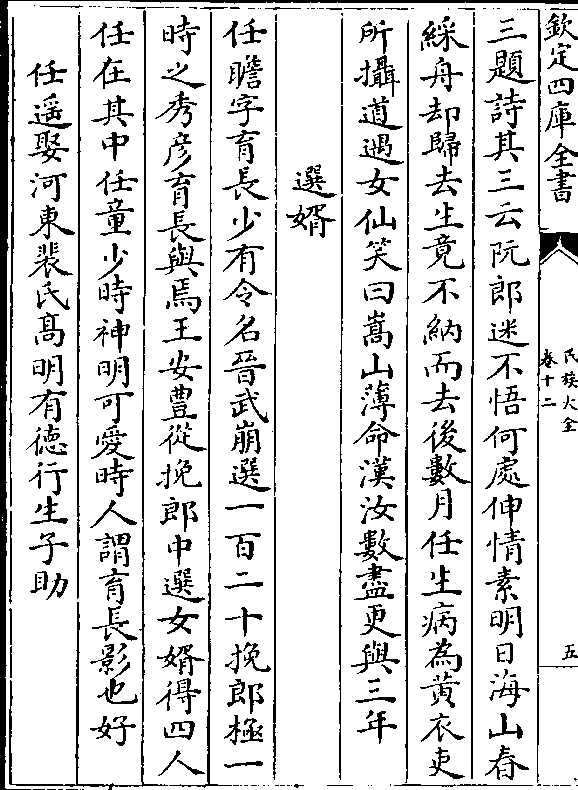 欽定四庫全書
氏族大全
卷十二
五
三題詩其三云阮郎迷不悟何處伸情素明日海山春
綵舟却歸去生竟不納而去後數月任生病為黄衣吏
所攝道遇女仙笑曰嵩山薄命漢汝數盡更與三年
選婿
任瞻字育長少有令名晉武崩選一百二十挽郎極一
時之秀彦育長與焉王安豐從挽郎中選女婿得四人
任在其中任童少時神明可愛時人謂育長影也好
任遥娶河東裴氏髙明有徳行生子助